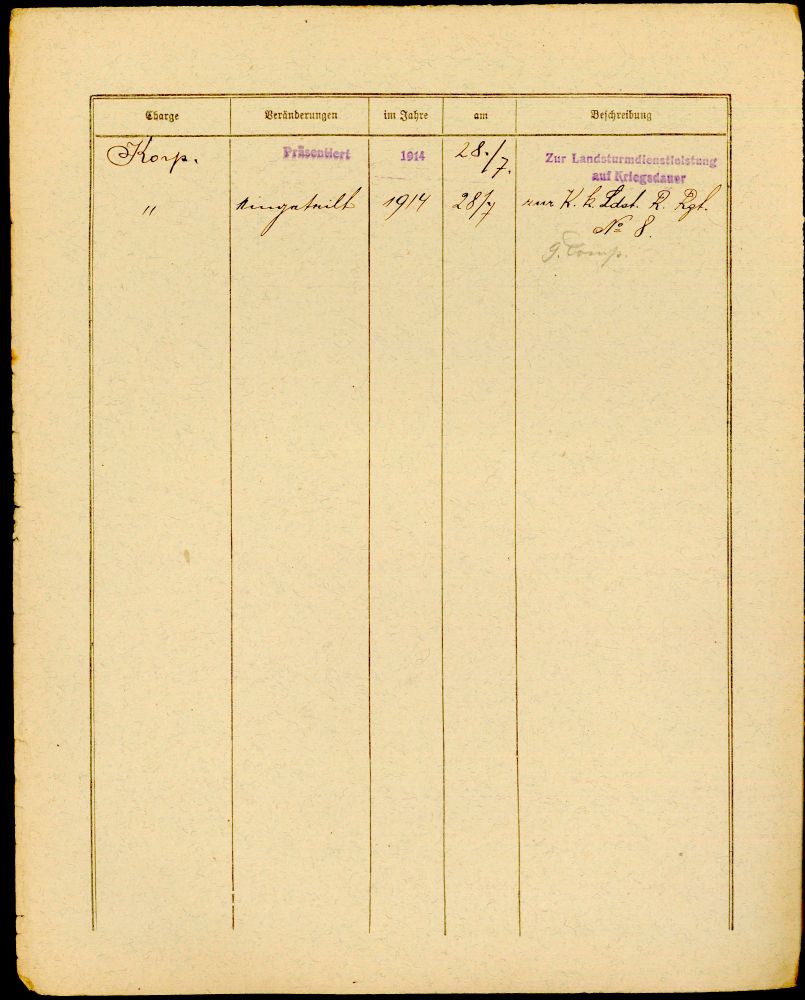 Charge Veränderungen im Jahre am Beschreibung
Korp. Präsentiert 1914 28./7. Zur Landsturmdienstleistung
auf Kriegsdauer
" eingeteilt 1914 28/7 zur K. k. Ldst. R. Rgt.
No 8.
9. Comp.